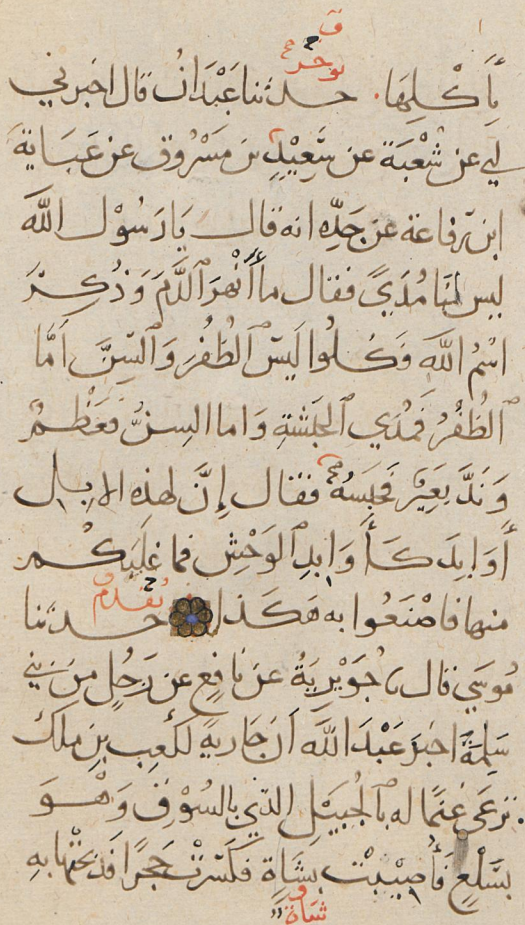 بأكلها. حدثنا عبدان قال اخبرني
ابي عن شعبة عن سعيد بن مسروق عن عباية
ابن رفاعة عن جده انه قال يا رسول الله
ليس لنا مُدًى فقال ما أَنْهَرَ الدَّمَ وَذُكِرَ
اسْمُ الله فَكُلُوا لَيْسَ الظُّفُرَ وَالسِّنَّ اَمَّا
الظُّفُرُ فَمُدَي الحَبَشَةِ وَاما السِنُّ فَعَظْمٌ
وَنَدَّ بَعِيْرٌ فَحَبَسَهُ فقال إِنَّ لهذه الابل
أَوَابِدَ كَأَوَابِدِ الوَحْشِ فما غلبكم
منها فاصْنَعُوا به هَكَذا حدثنا
مُوسَي قال جُوَيْرِيَةُ عن نافِعٍ عن رَجُلٍ من بني
سَلِمَةَ اخبر عَبْدَ الله اَن جَارِيةً لكَعب بن ملك
ترعى غنمًا له بالجُبَيْلِ الذي بالسُوْقِ وَهْوَ
بسَلْعٍ فَأُصِيْبَتْ بشَاةٍ فكَسَرَتْ حَجرًا فَذبحَتْهَا به
شاة